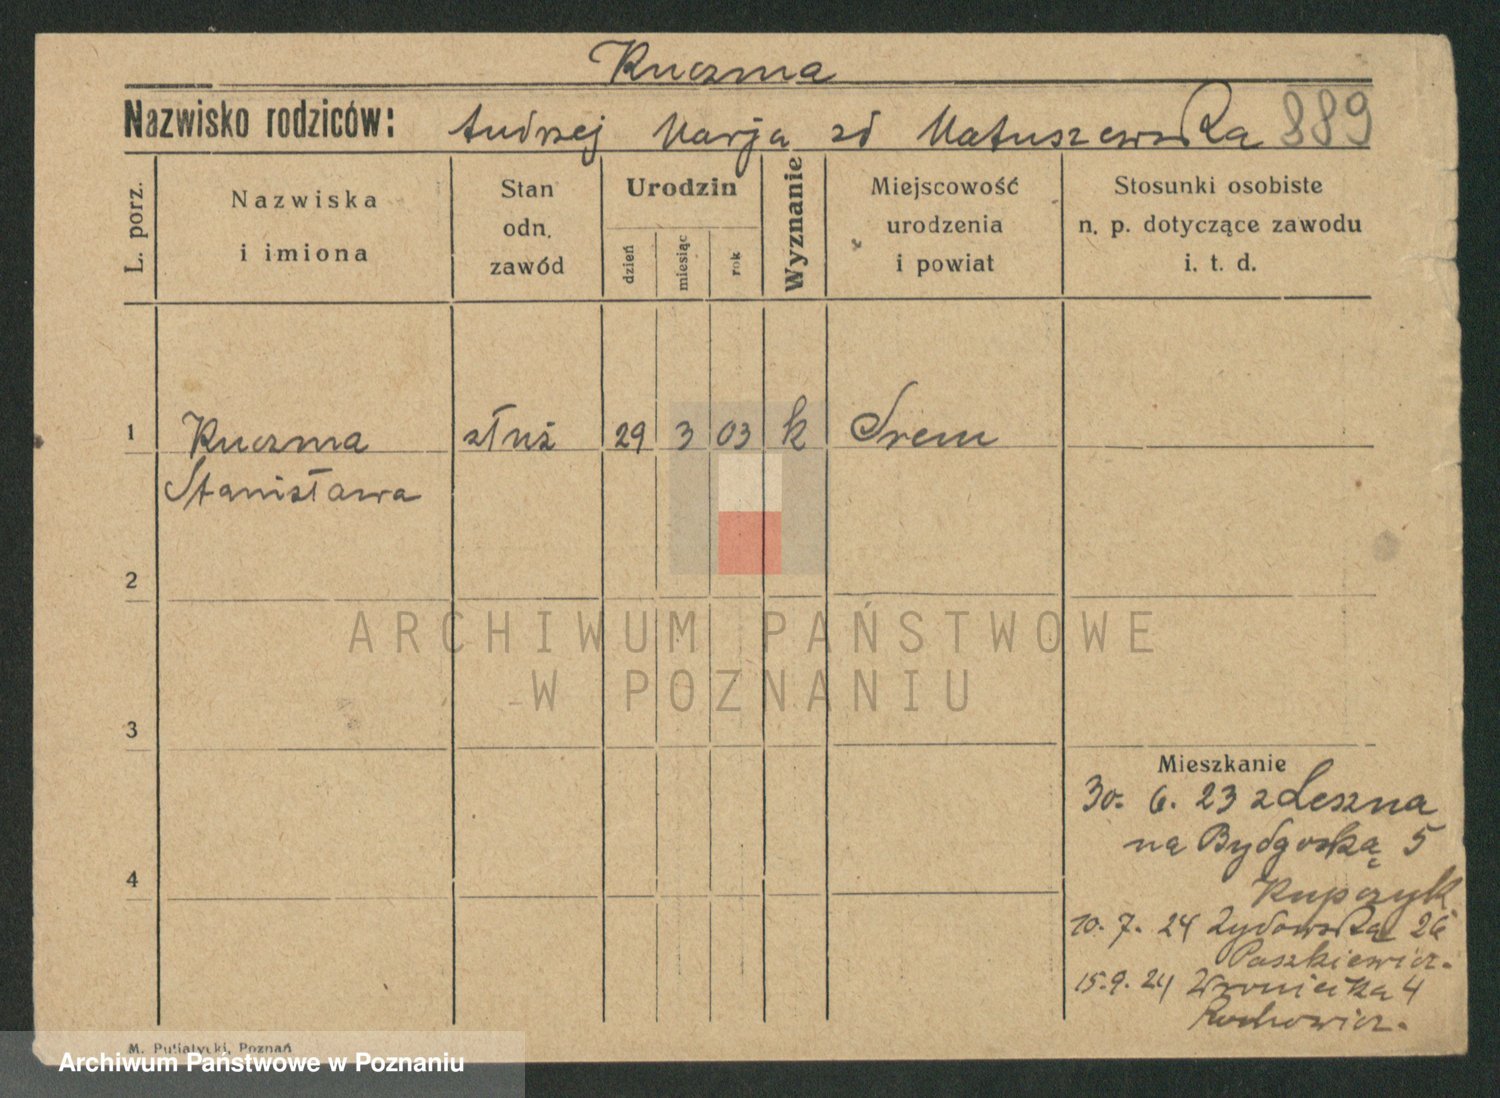 Kuczma
Nazwisko rodziców: Andrzej Marja zd Matuszewska 889
L. porz.
Nazwiska
i imiona
Stan
odn.
zawód
Urodzin
dzień
miesiąc
rok
Wyznanie
Miejscowość
urodzenia
i powiat
Stosunki osobiste
n. p. dotyczące zawodu
i. t. d.
1 Kuczma służ 29 3 03 k Śrem
Stanisława
2
ARCHIWUM PAŃSTWOWE
W POZNANIU
3
Mieszkanie
30. 6. 23 z Leszna
na Bydgoską 5
4
Kupczyk
10. 7. 24 Żydowska 26
Paszkiewicz.
15. 9. 24 Wroniecka 4
Rochowicz.
M. Putiatycki, Poznań
Archiwum Państwowe w Poznaniu